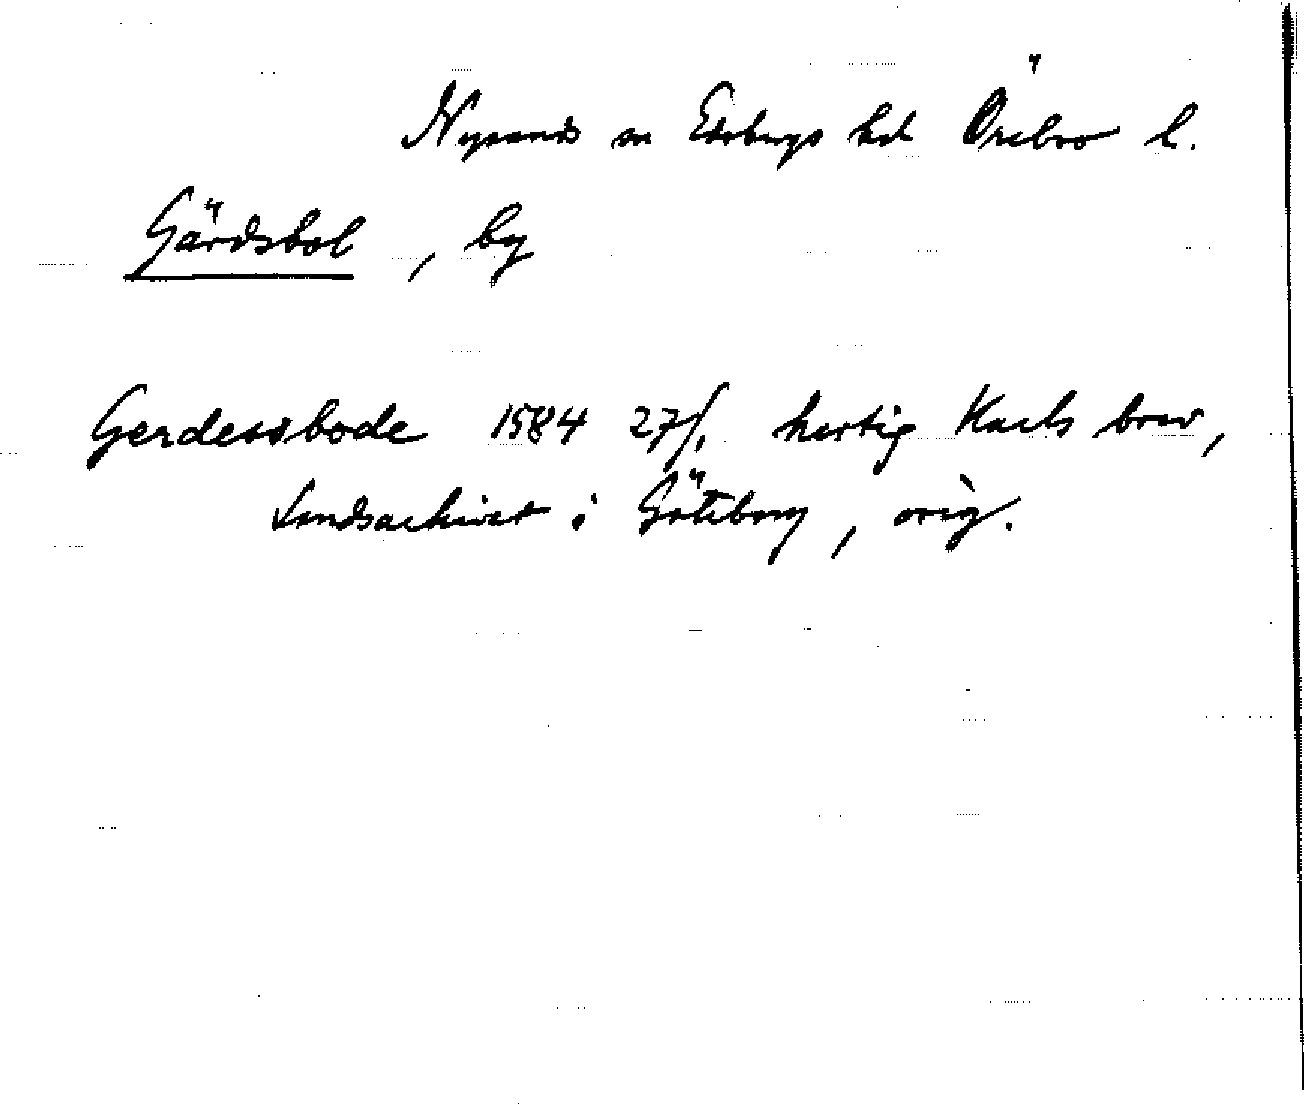 Nysunds sn Edsbergs hd Örebro l.
Gärdsbol, by
Gerdessbode 1584 27/1 hertig Karls brev,
Landsarkivet i Göteborg, orig.